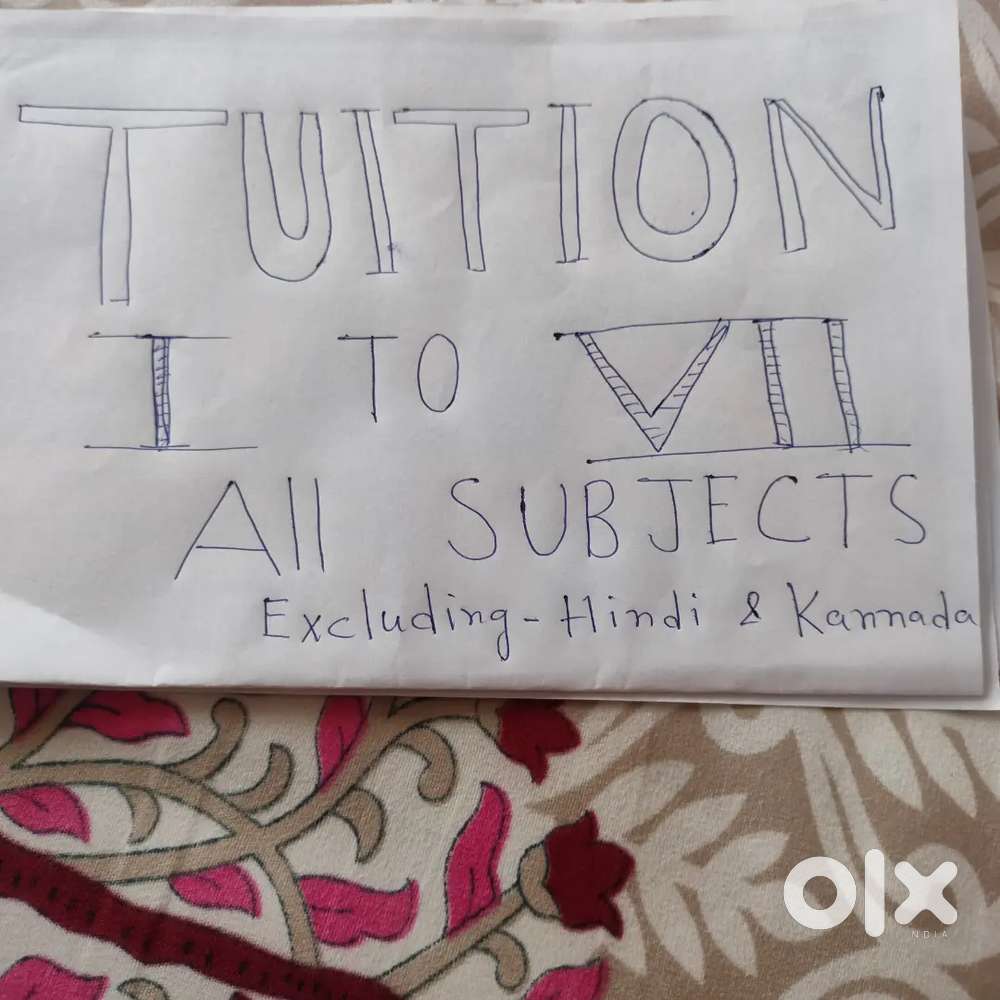 TUITION
I TO VII
All SUBJECTS
Excluding - Hindi & Kannada
olx
INDIA